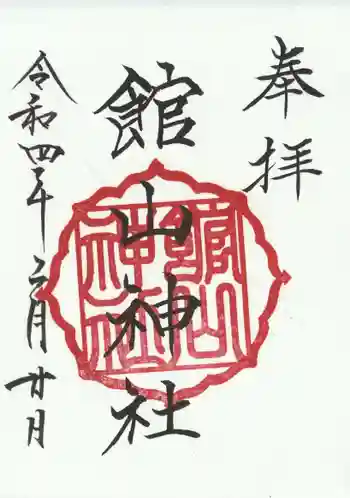 奉拝
館山神社
館山神社
令和四年二月廿日